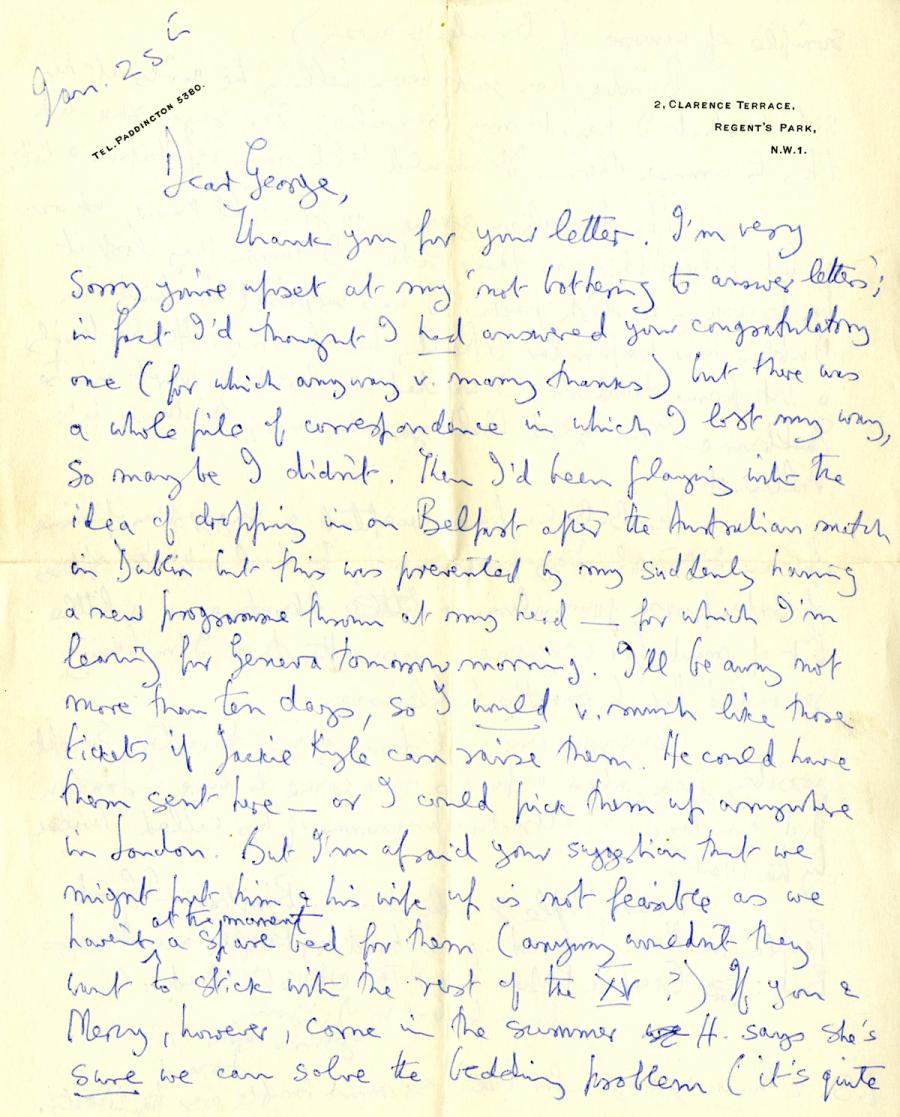 Jan. 25th
TEL. PADDINGTON 5380.
2, CLARENCE TERRACE,
REGENT'S PARK,
N.W.1.
Dear George,
Thank you for your letter. I'm very
sorry you're upset at my 'not bothering to answer letters';
in fact I'd thought I had answered your congratulatory
one (for which anyway v. many thanks) but there was
a whole pile of correspondence in which I lost my way,
so maybe I didn't. Then I'd been playing with the
idea of dropping in on Belfast after the Australian match
in Dublin but this was prevented by my suddenly having
a new programme thrown at my head — for which I'm
leaving for Geneva tomorrow morning. I'll be away not
more than ten days, so I would v. much like those
tickets if Jackie Kyle can raise them. He could have
them sent here — or I could pick them up anywhere
in London. But I'm afraid your suggestion that we
might put him & his wife up is not feasible as we
haven't at the moment a spare bed for them (anyway wouldn't they
want to stick with the rest of the XV ?) If you &
Mercy, however, come in the summer H. says she's
sure we can solve the bedding problem (it's quite